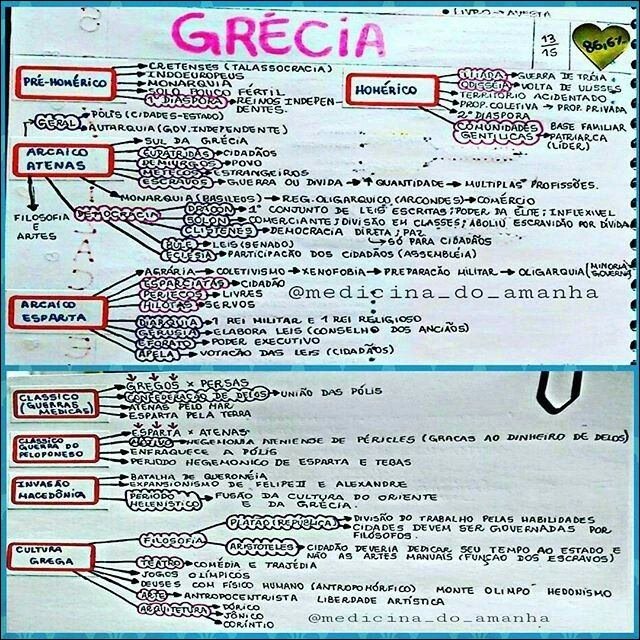 LIVRO →
GRÉCIA
13
15
86,67.
PRÉ-HOMÉRICO
→ CRETENSES (TALASSOCRACIA)
→ INDOEUROPEUS
→ MONARQUIA
→ SOLO POUCO FÉRTIL
→ 1ª DIASPORA → REINOS INDEPENDENTES.
HOMÉRICO
→ ILÍADA → GUERRA DE TRÓIA
→ ODISSEIA → VOLTA DE ULISSES
→ TERRITÓRIO ACIDENTADO
→ PROP. COLETIVA → PROP. PRIVADA
→ 2ª DIASPORA
→ COMUNIDADES GENTILICAS → BASE FAMILIAR
→ PATRIARCA (LÍDER)
GERAL → PÓLIS (CIDADES-ESTADO)
→ AUTARQUIA (GOV. INDEPENDENTE)
ARCAICO ATENAS
→ SUL DA GRÉCIA
→ EUPATRIDAS → CIDADÃOS
→ DEMIURGOS → POVO
→ METECOS → ESTRANGEIROS
→ ESCRAVOS → GUERRA OU DÍVIDA → ↑ QUANTIDADE → MULTIPLAS PROFISSÕES.
→ MONARQUIA (BASILEUS) → REG. OLIGARQUICO (ARCONDES) → COMÉRCIO
FILOSOFIA E ARTES
DEMOCRACIA
→ DRACON → 1º CONJUNTO DE LEIS ESCRITAS; PODER DA ELITE; INFLEXIVEL
→ SOLON → COMERCIANTE; DIVISÃO EM CLASSES; ABOLIU ESCRAVIDÃO POR DÍVIDA
→ CLISTENES → DEMOCRACIA DIRETA; PAZ
→ SÓ PARA CIDADÃOS
→ BULE → LEIS (SENADO)
→ ECLESIA → PARTICIPAÇÃO DOS CIDADÃOS (ASSEMBLÉIA)
ARCAICO ESPARTA
→ AGRÁRIA → COLETIVISMO → XENOFOBIA → PREPARAÇÃO MILITAR → OLIGARQUIA (MINORIA GOVERNA)
→ ESPARCIATAS → CIDADÃO
→ PERIECOS → LIVRES
→ HILOTAS → SERVOS
@medicina_do_amanha
→ DIARQUIA → 1 REI MILITAR E 1 REI RELIGIOSO
→ GERÚSIA → ELABORA LEIS (CONSELHO DOS ANCIÃOS)
→ EFORATO → PODER EXECUTIVO
→ APELA → VOTAÇÃO DAS LEIS (CIDADÃOS)
CLÁSSICO (GUERRAS MEDICAS)
→ GREGOS × PERSAS
→ CONFEDERAÇÃO DE DELOS → UNIÃO DAS PÓLIS
→ ATENAS PELO MAR
→ ESPARTA PELA TERRA
CLÁSSICO GUERRA DO PELOPONESO
→ ESPARTA × ATENAS
→ MOTIVO → HEGEMONIA ATENIENSE DE PÉRICLES (GRACAS AO DINHEIRO DE DELOS)
→ ENFRAQUECE A PÓLIS
→ PERIODO HEGEMONICO DE ESPARTA E TEBAS
INVASÃO MACEDÔNIA
→ BATALHA DE QUERONÉIA
→ EXPANSIONISMO DE FELIPE II E ALEXANDRE
→ PERIODO HELENÍSTICO → FUSÃO DA CULTURA DO ORIENTE E DA GRÉCIA.
CULTURA GREGA
→ FILOSOFIA
→ PLATÃO (REPÚBLICA) → DIVISÃO DO TRABALHO PELAS HABILIDADES
→ CIDADES DEVEM SER GOVERNADAS POR FILOSOFOS.
→ ARISTOTELES → CIDADÃO DEVERIA DEDICAR SEU TEMPO AO ESTADO E NÃO AS ARTES MANUAIS (FUNÇAO DOS ESCRAVOS)
→ TEATRO → COMÉDIA E TRAJÉDIA
→ JOGOS OLÍMPICOS
→ DEUSES COM FÍSICO HUMANO (ANTROPOMÓRFICO) MONTE OLIMPO HEDONISMO
→ ARTE → ANTROPOCENTRISTA LIBERDADE ARTÍSTICA
→ ARQUITETURA → DÓRICO
→ JÔNICO
→ CORÍNTIO
@medicina_do_amanha